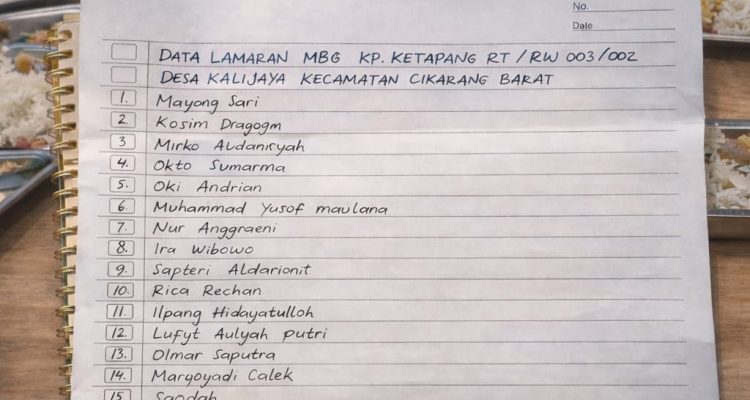 No.
Date
DATA LAMARAN MBG KP. KETAPANG RT / RW 003/002
DESA KALIJAYA KECAMATAN CIKARANG BARAT
1. Mayong Sari
2 Kosim Dragogm
3 Mirko Audanisyah
4. Okto Sumarma
5. Oki Andrian
6. Muhammad Yusof maulana
7. Nur Anggraeni
8. Ira Wibowo
9. Sapteri Aldarionit
10. Rica Rechan
11. Ilpang Hidayatulloh
12. Lufyt Aulyah Putri
13. Olmar Saputra
14. Margoyadi Calek
15. Saodah